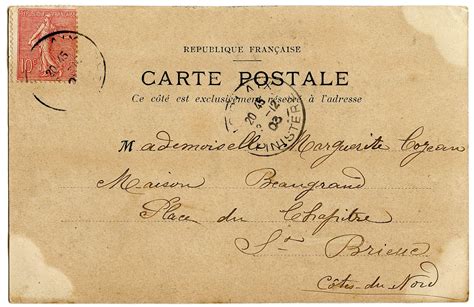 10c
20 45
REPUBLIQUE FRANÇAISE
CARTE POSTALE
Ce côté est exclusivement réservé à l'adresse
20 45
-12
03
FINISTERE
Mademoiselle Marguerite Cozean
Maison Beaugrand
Place du Chapitre
St Brieuc
Côtes-du-Nord